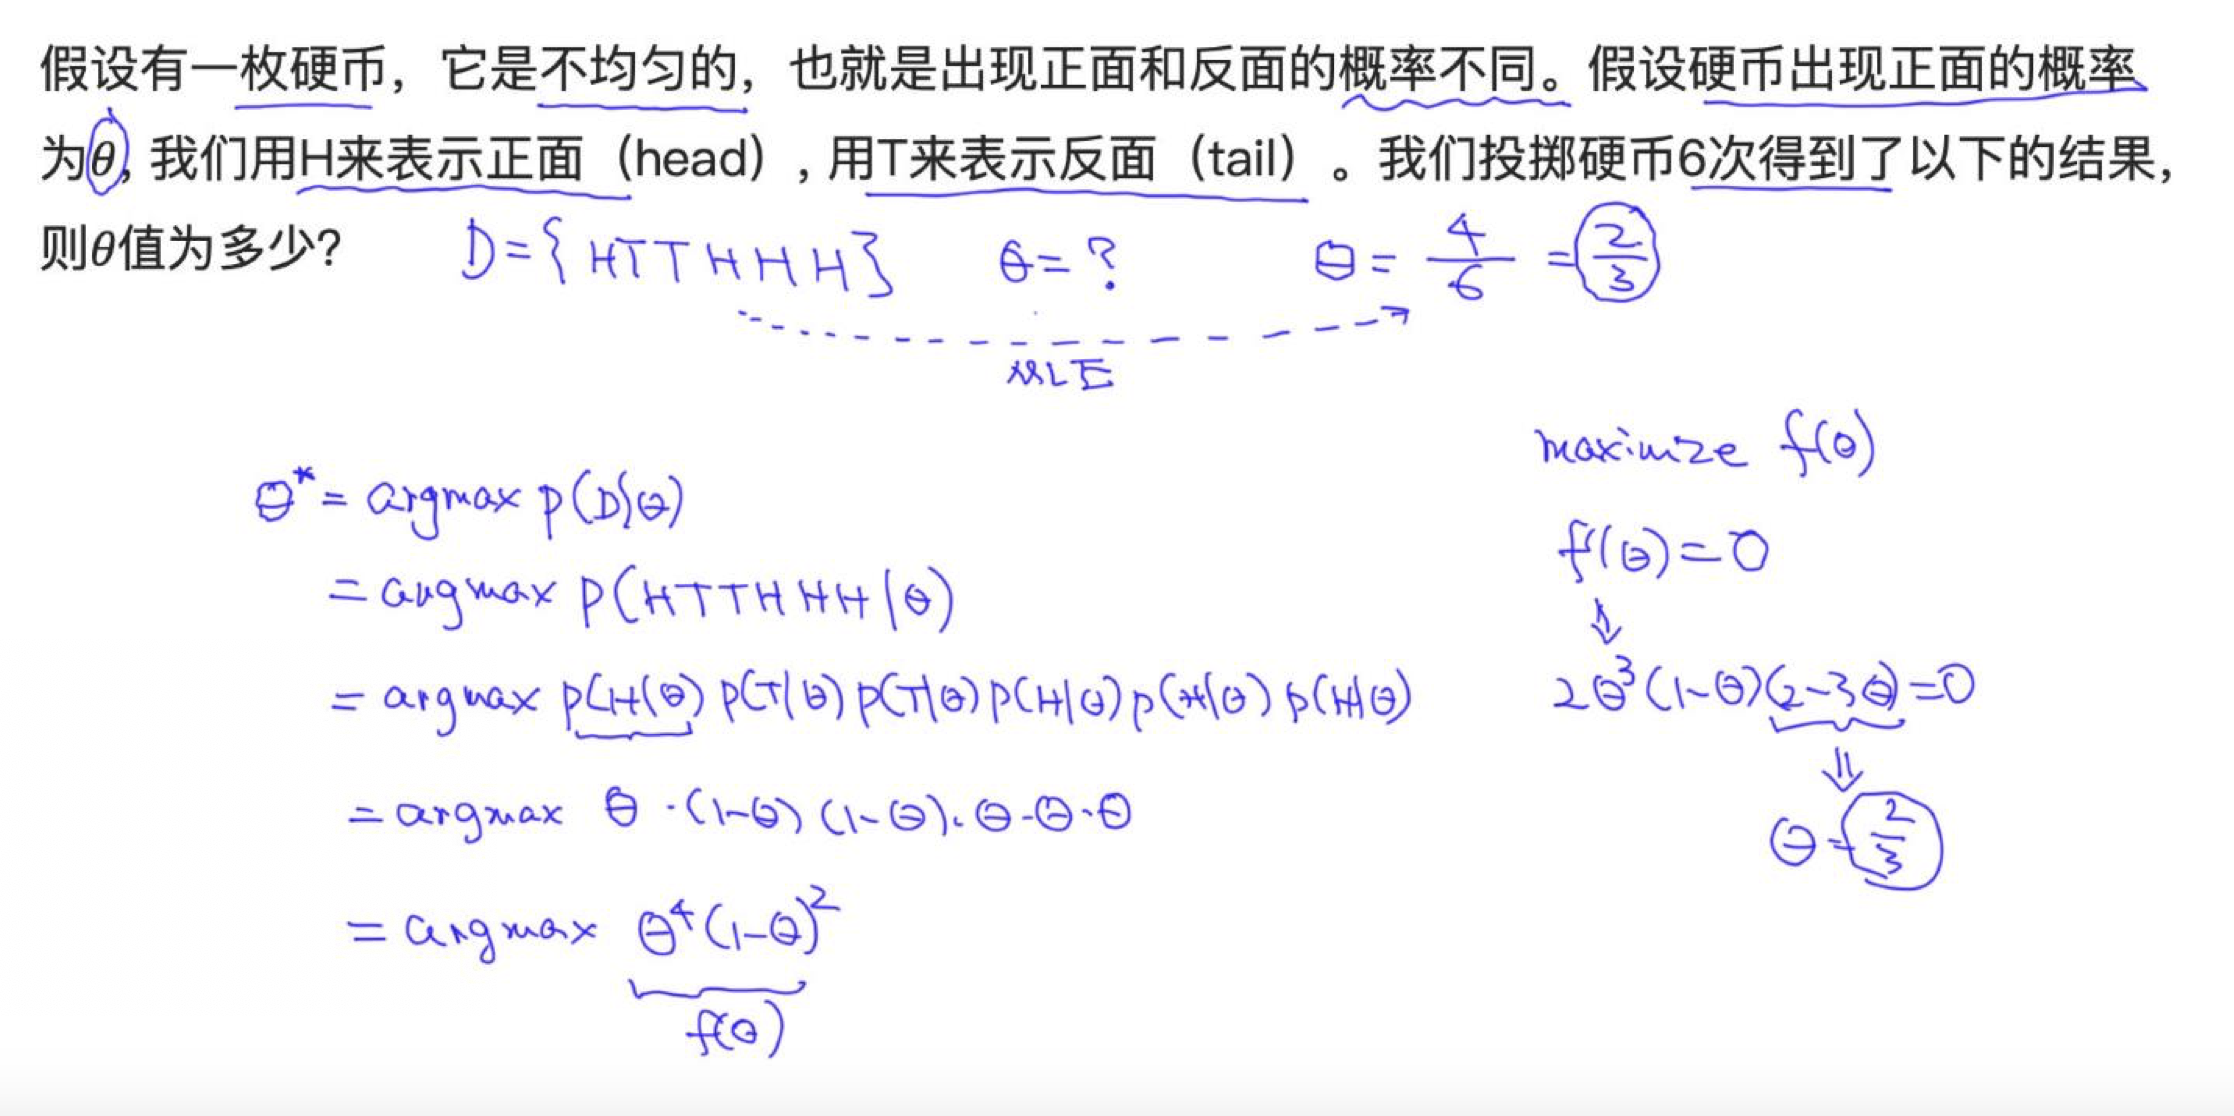 假设有一枚硬币，它是不均匀的，也就是出现正面和反面的概率不同。假设硬币出现正面的概率
为θ, 我们用H来表示正面（head）, 用T来表示反面（tail）。我们投掷硬币6次得到了以下的结果，
则θ值为多少?
D={HTTHHH} θ=? θ=4/6=2/3
MLE
θ*=argmax p(D|θ)
=argmax p(HTTHHH|θ)
=argmax p(H|θ) p(T|θ) p(T|θ) p(H|θ) p(H|θ) p(H|θ)
=argmax θ·(1-θ)(1-θ)·θ·θ·θ
=argmax θ⁴(1-θ)²
f(θ)
maximize f(θ)
f'(θ)=0
⇓
2θ³(1-θ)(2-3θ)=0
⇓
θ=2/3